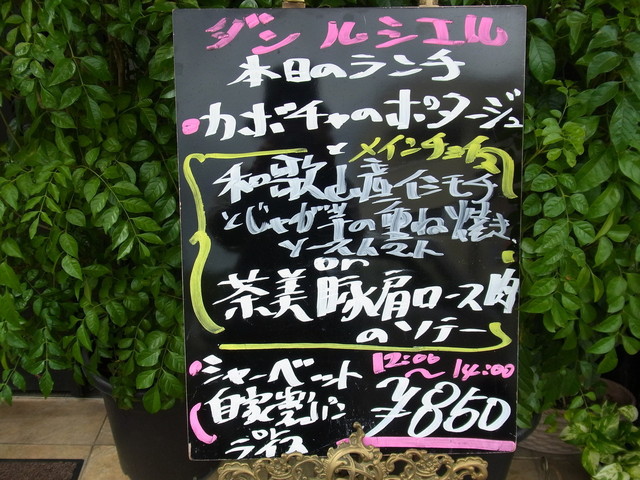 ダン ルシエル
本日のランチ
・カボチャのポタージュ
と メインチョイス
和歌山産イシモチ
とじゃが芋の重ね焼き
ソーストマト
or
茶美豚肩ロース肉
のソテー
・シャーベット
自家製パン
ライス
12:00
～14:00
¥850